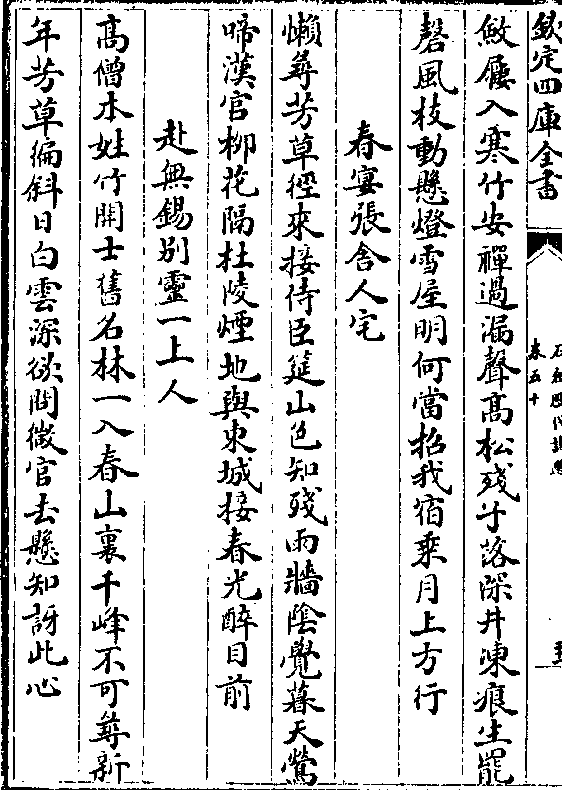 欽定四庫全書
卷五十
斂屨入寒竹安禪過漏聲高松殘子落深井凍痕生罷
磬風枝動懸燈雪屋明何當招我宿乘月上方行
春宴張舍人宅
懶尋芳草徑來接侍臣筵山色知殘雨牆陰覺暮天鶯
啼漢官柳花隔杜陵煙地與東城接春光醉目前
赴無錫别靈一上人
高僧本姓竹開士舊名林一入春山裏千峰不可尋新
年芳草徧斜日白雲深欲問徵官去懸知訝此心